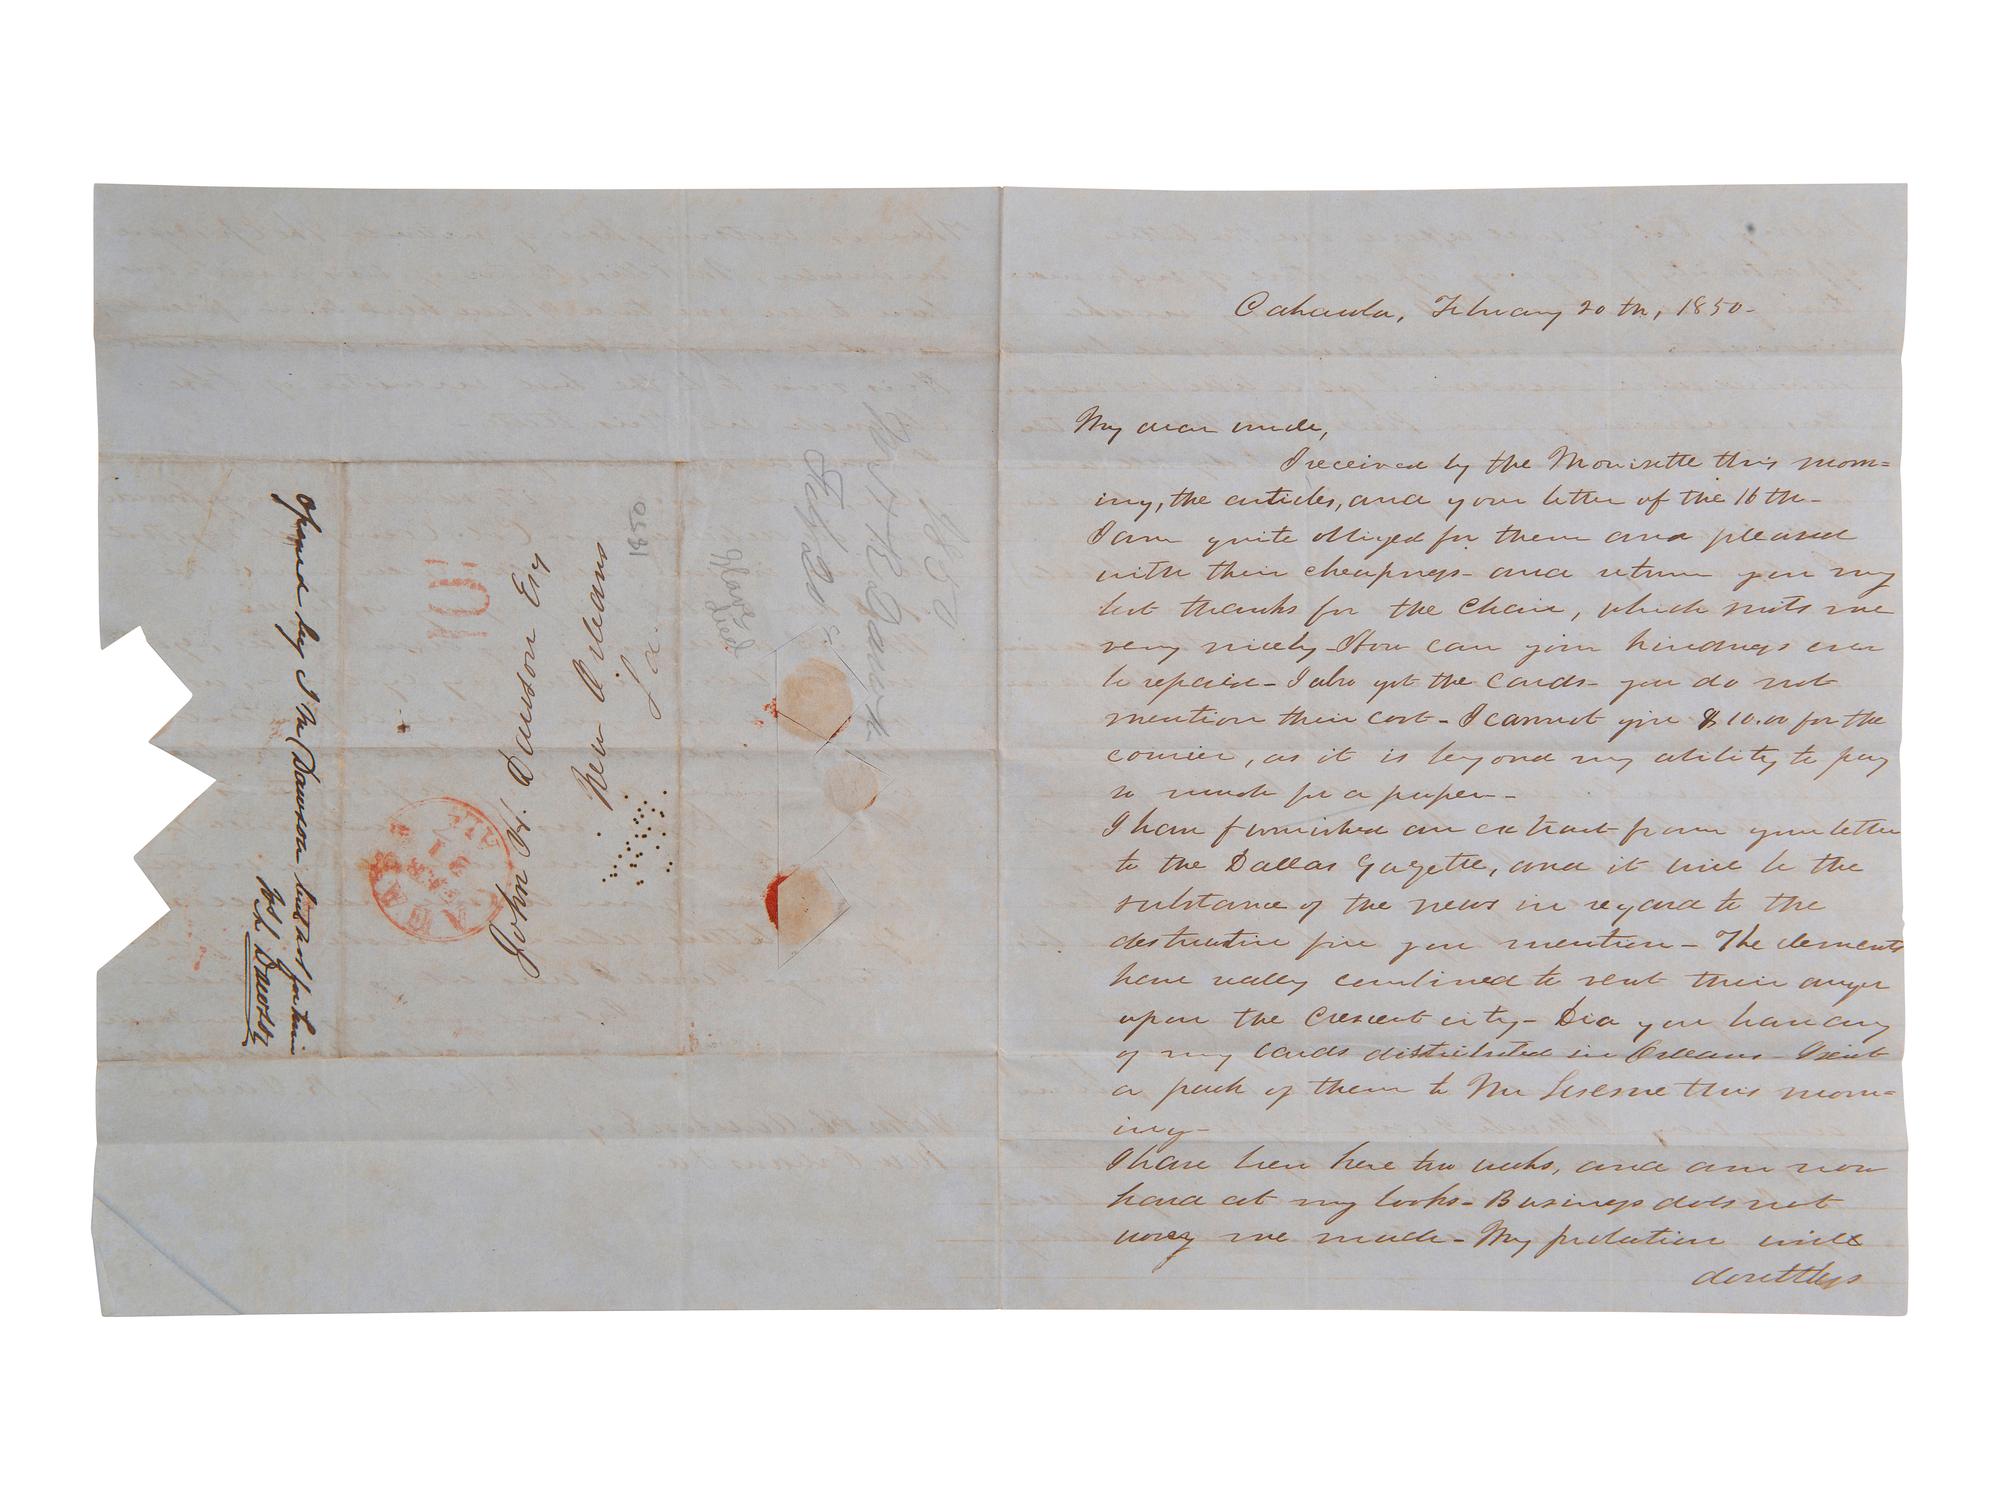 Cahawba, February 20th, 1850-
My dear uncle,
I received by the Morisette this morn=
ing, the articles, and your letter of the 16th-
I am quite obliged for them and pleased
with their cheapness- and return you my
best thanks for the chair, which suits me
very nicely- How can your kindness ever
be repaid- I also got the cards- you do not
mention their cost- I cannot give $10.00 for the
courier, as it is beyond my ability to pay
so much for a paper-
I have furnished an extract from your letter
to the Dallas Gazette, and it will be the
substance of the news in regard to the
destructive fire you mention- The elements
have really combined to vent their anger
upon the Crescent city- Did you have any
of my cards distributed in Orleans- I sent
a pack of them to Mr Sesesne this morn=
ing-
I have been here two weeks, and am now
hard at my books- Business does not
worry me much- My probation will
doubtless
John H. Dawson Esq
New Orleans
La.
1850
10
Opened by J M Dawson but not for him
Dawson
1850
Jno H R Dawson
Feby 20
Slave
Deed